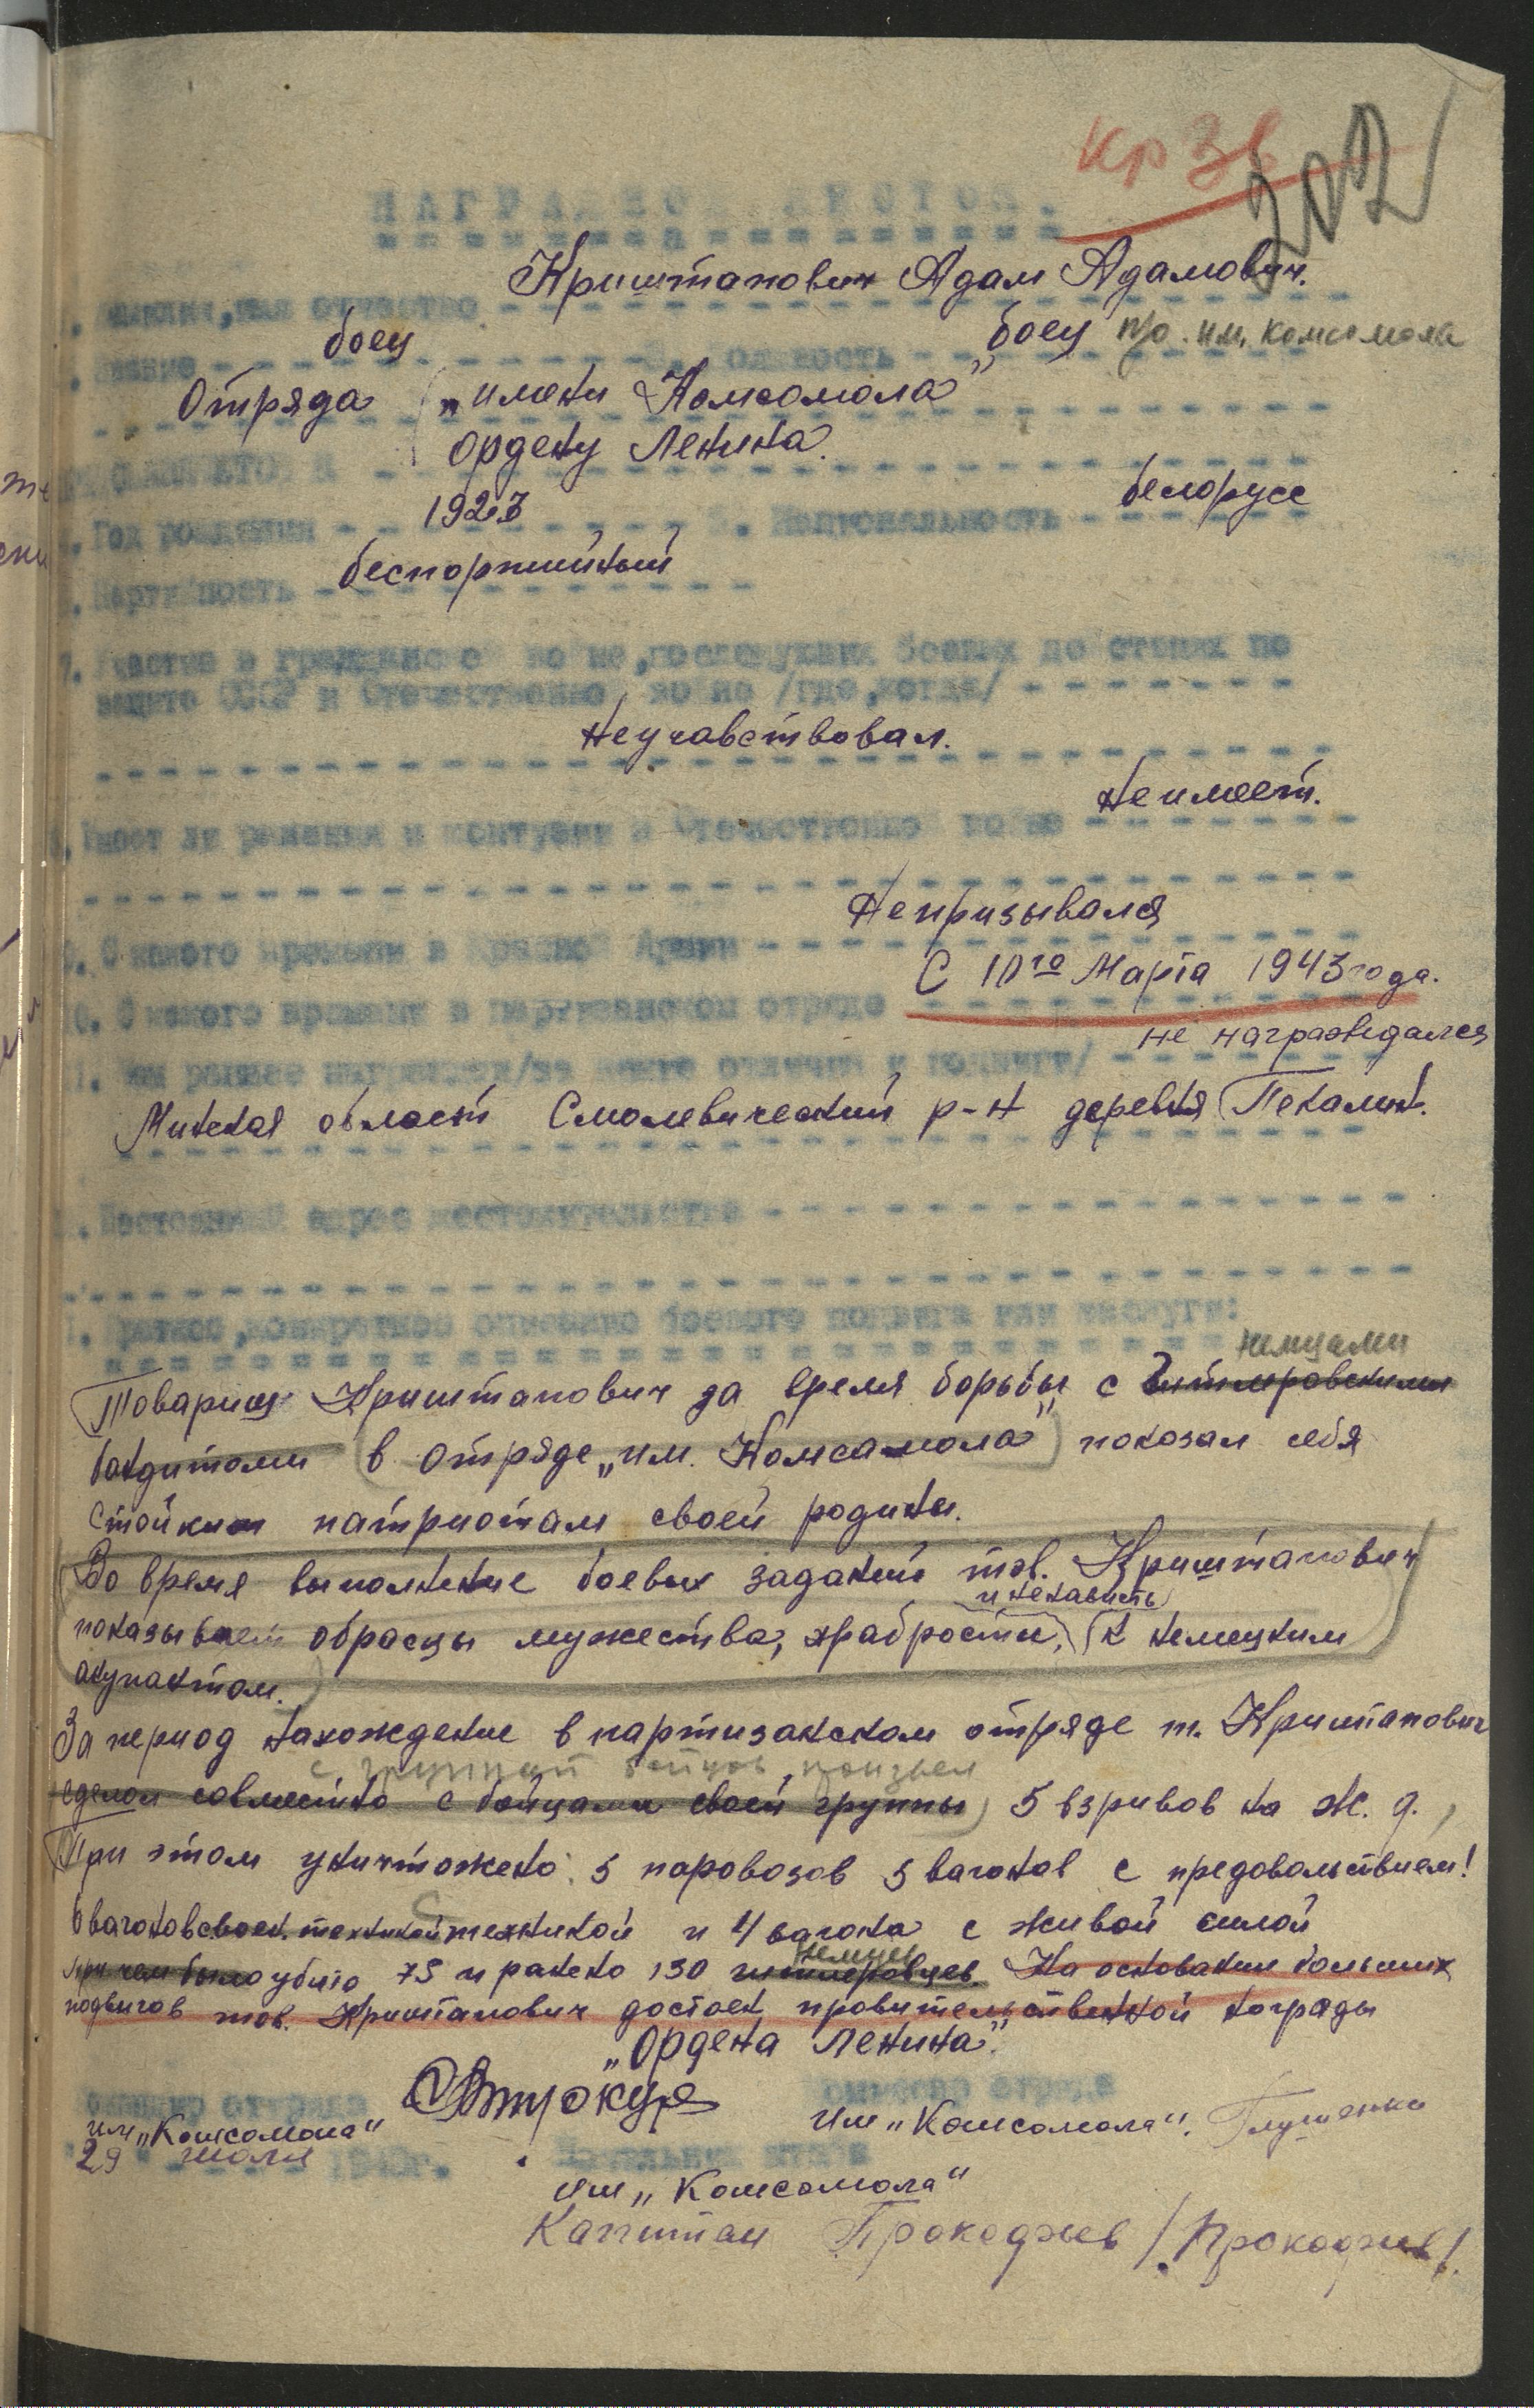 кр Зв
202
НАГРАДНОЙ ЛИСТОК.
Криштапович Адам Адамович.
Фамилия, имя отчество
боец "боец п/о. им. комсомола
Звание должность
Отряда „имени Комсомола"
ордену Ленина.
1923 белорусс
Год рождения Национальность
беспортийный
Партийность
7. Участие в гражданской войне, последующих боевых действиях по
защите СССР и Отечественной войне /где, когда/
Неучавствовал.
Неимеет.
Имеет ли ранения и контузии в Отечественной войне
Непризывался
9. С какого времени в Красной Армии
С 10го Марта 1943 года.
10. С какого времени в партизанском отряде
не награждался
11. Чем раннее награжден/за какие отличия и подвиги/
Минская область Смолевический р-н деревня Пекалин.
Постоянный адрес местожительства
1. Краткое, конкретное описание боевого подвига или заслуги:
немцами
Товарищ Криштапович за время борьбы с гитлеровскими
бандитоми в отряде „им. Комсамола" показал себя
стойким патриотам своей родины.
Во время выполнение боевых заданий тов. Криштапович
и ненависть
показывает образцы мужества, храбрости, к немецким
акупантом.
За период нахождение в партизанском отряде т. Криштапович
с группой бойцов произвел
сделал совместно с бойцами своей группы 5 взривов на ж. д.,
При этом уничтожено: 5 паровозов 5 вагонов с предовольствием!
6 вагонов с воен. техникой техникой и 4 вагона с живой силой
немцев
при чем было убито 75 и ранено 130 гитлеровцев На основании больших
подвигов тов. Криштапович достоен провительственной нограды
„Ордена Ленина".
Командир отряда Комиссар отряда
им „Комсомола" им „Комсомола". Глушенко
29 июля 1943г. Начальник штаба
им „Комсомола"
Капитан Прокофьев /Прокофьев/.